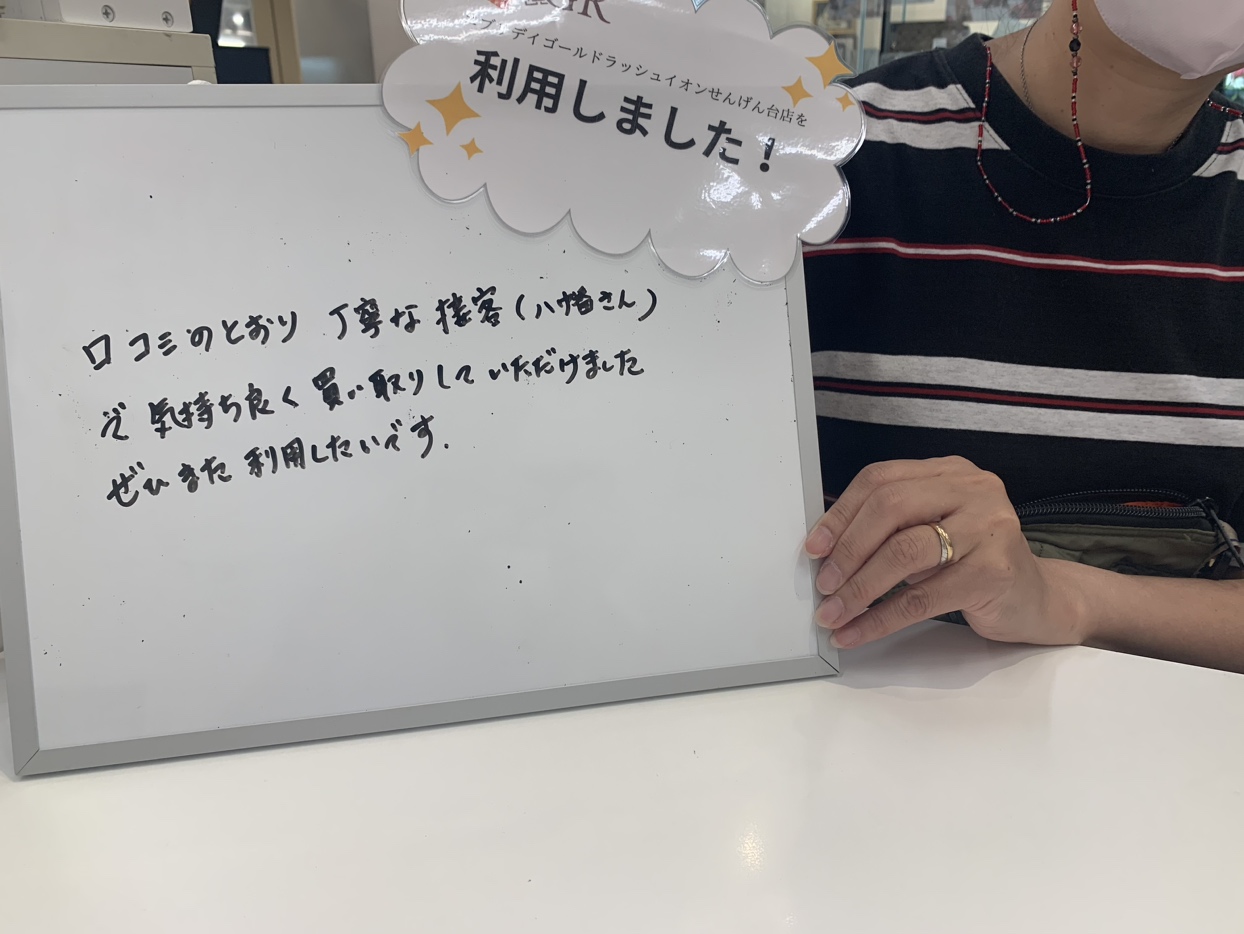 デイゴールドラッシュイオンせんげん台店を
利用しました！
口コミのとおり 丁寧な 接客(八幡さん)
で 気持ち良く 買い取りして いただけました
ぜひ また 利用したいです.